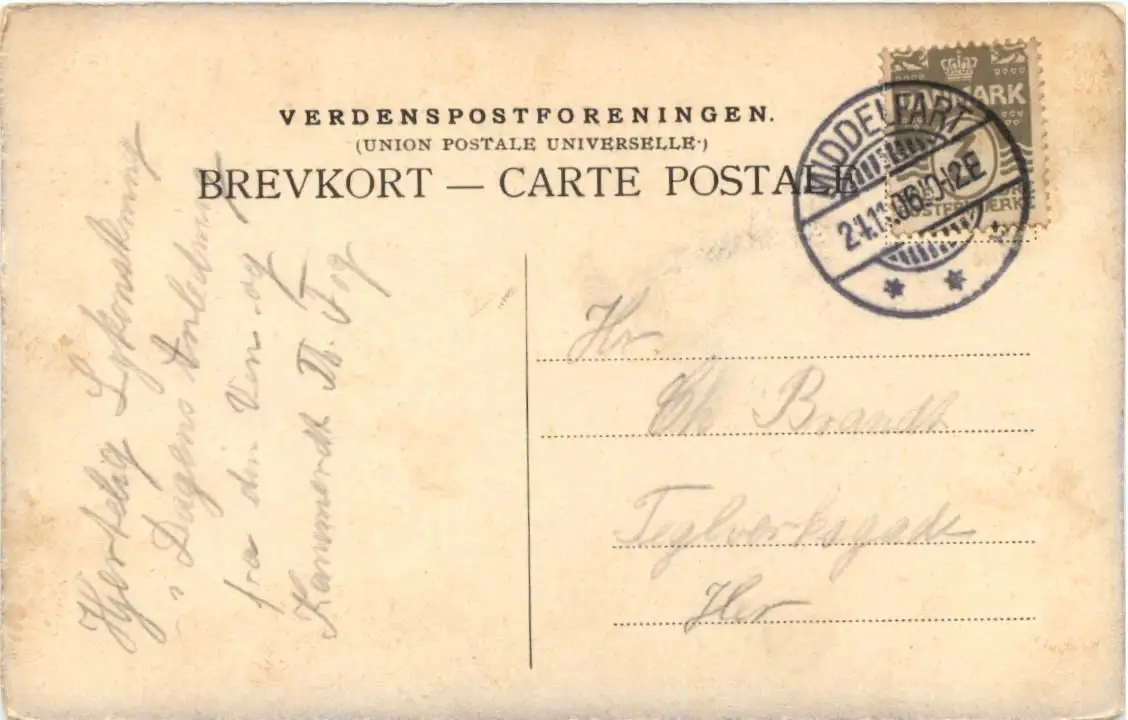 VERDENSPOSTFORENINGEN.
(UNION POSTALE UNIVERSELLE.)
BREVKORT — CARTE POSTALE
DANMARK
3
POSTFRIMÆRKE
MIDDELFART
24.11.06 10-12E
Hjertelig Lykønskning
i Dagens Anledning
fra din Ven og
Kammerat Th. Fog
Hr.
Ch Brandt
Teglværksgade
Her